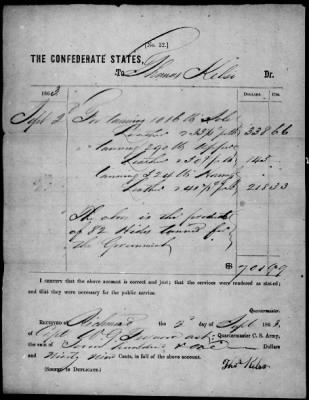 [No. 22.]
THE CONFEDERATE STATES,
To Thomas Kelso Dr.
1863 DOLLARS. CTS.
Sept 2d For tanning 1016 lb Sole
Leather 33⅓ plb 338 66
tanning 290 lb Upper
Leather 50¢ plb 145
lb
Leather 40¢ plb 218 33
The above is the product
of 82 Hides tanned for
the Government
$701 99
I certify that the above account is correct and just; that the services were rendered as stated;
and that they were necessary for the public service.
Quartermaster.
RECEIVED at Richmond the 2d day of Sept 1863, of
Capt Quartermaster C. S. Army,
the sum of Seven hundred & one Dollars
and Ninety Nine Cents, in full of the above account.
(SIGNED IN DUPLICATE.) Thos Kelso